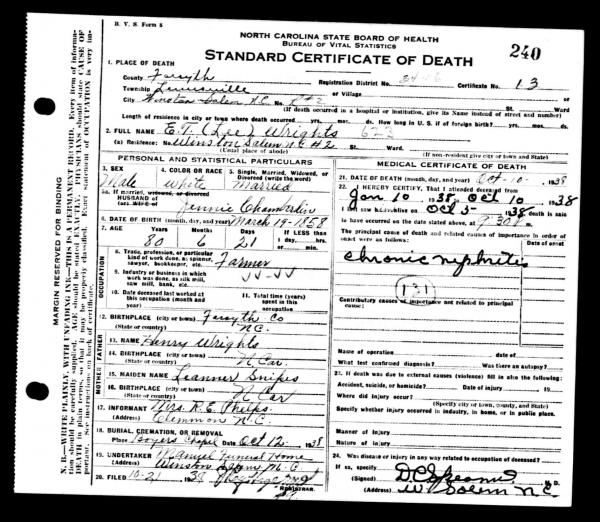 B. V. S. Form 5
NORTH CAROLINA STATE BOARD OF HEALTH
BUREAU OF VITAL STATISTICS
STANDARD CERTIFICATE OF DEATH
240
1. PLACE OF DEATH
County Forsyth
Registration District No.
Certificate No. 13
Township Lewisville
or Village
City Winston Salem N.C. No. R#2 St. Ward
(If death occurred in a hospital or institution, give its Name instead of street and number)
Length of residence in city or town where death occurred yrs. mos. ds. How long in U. S. if of foreign birth? yrs. mos. ds.
2. FULL NAME E.T. (Lee) Wrights 623
(a) Residence: No. Winston Salem N.C. #2 St. Ward.
(Usual place of abode)
(If non-resident give city or town and State)
PERSONAL AND STATISTICAL PARTICULARS
3. SEX Male
4. COLOR OR RACE White
5. Single, Married, Widowed, or Divorced (write the word) Married
5a. If married, widowed, or divorced
HUSBAND of
(or) WIFE of Jennie Chamberlin
6. DATE OF BIRTH (month, day, and year) March 19-1858
7. AGE Years 80 Months 6 Days 21 If LESS than 1 day, hrs. or min.
OCCUPATION
8. Trade, profession, or particular kind of work done, as spinner, sawyer, bookkeeper, etc. Farmer
9. Industry or business in which work was done, as silk mill, saw mill, bank, etc.
10. Date deceased last worked at this occupation (month and year)
11. Total time (years) spent in this occupation
12. BIRTHPLACE (city or town) Forsyth Co
(State or country) N.C.
FATHER
13. NAME Henry Wrights
14. BIRTHPLACE (city or town)
(State or country) N Car.
MOTHER
15. MAIDEN NAME Leanner Snipes
16. BIRTHPLACE (city or town)
(State or country) N Car
17. INFORMANT Mrs. R.E. Phelps
(Address) Clemmon N.C.
18. BURIAL, CREMATION, OR REMOVAL
Place Boyers Chapel Date Oct 12. 1938
19. UNDERTAKER Funeral Home
(Address) Winston Salem N.C
20. FILED 10-21 1938
REGISTRAR.
MEDICAL CERTIFICATE OF DEATH
21. DATE OF DEATH (month, day, and year) Oct-10- 1938
22. I HEREBY CERTIFY, That I attended deceased from
Jan 10 1938 to Oct 10 1938
I last saw him alive on Oct 5- 1938 death is said
to have occurred on the date stated above, at 9:30 P m.
The principal cause of death and related causes of importance in order of
onset were as follows:
Date of onset
Chronic nephritis
131
Contributory causes of importance not related to principal
cause:
Name of operation Date of
What test confirmed diagnosis? Was there an autopsy?
23. If death was due to external causes (violence) fill in also the following:
Accident, suicide, or homicide? Date of injury 19
Where did injury occur?
(Specify city or town, county, and State)
Specify whether injury occurred in industry, in home, or in public place.
Manner of Injury
Nature of Injury
24. Was disease or injury in any way related to occupation of deceased?
If so, specify
(Signed) M. D.
(Address) W Salem N C.
MARGIN RESERVED FOR BINDING
N. B.—WRITE PLAINLY, WITH UNFADING INK—THIS IS A PERMANENT RECORD. Every item of information should be carefully supplied. AGE should be stated EXACTLY. PHYSICIANS should state CAUSE OF DEATH in plain terms, so that it may be properly classified. Exact statement of OCCUPATION is very important. See instructions on back of certificate.